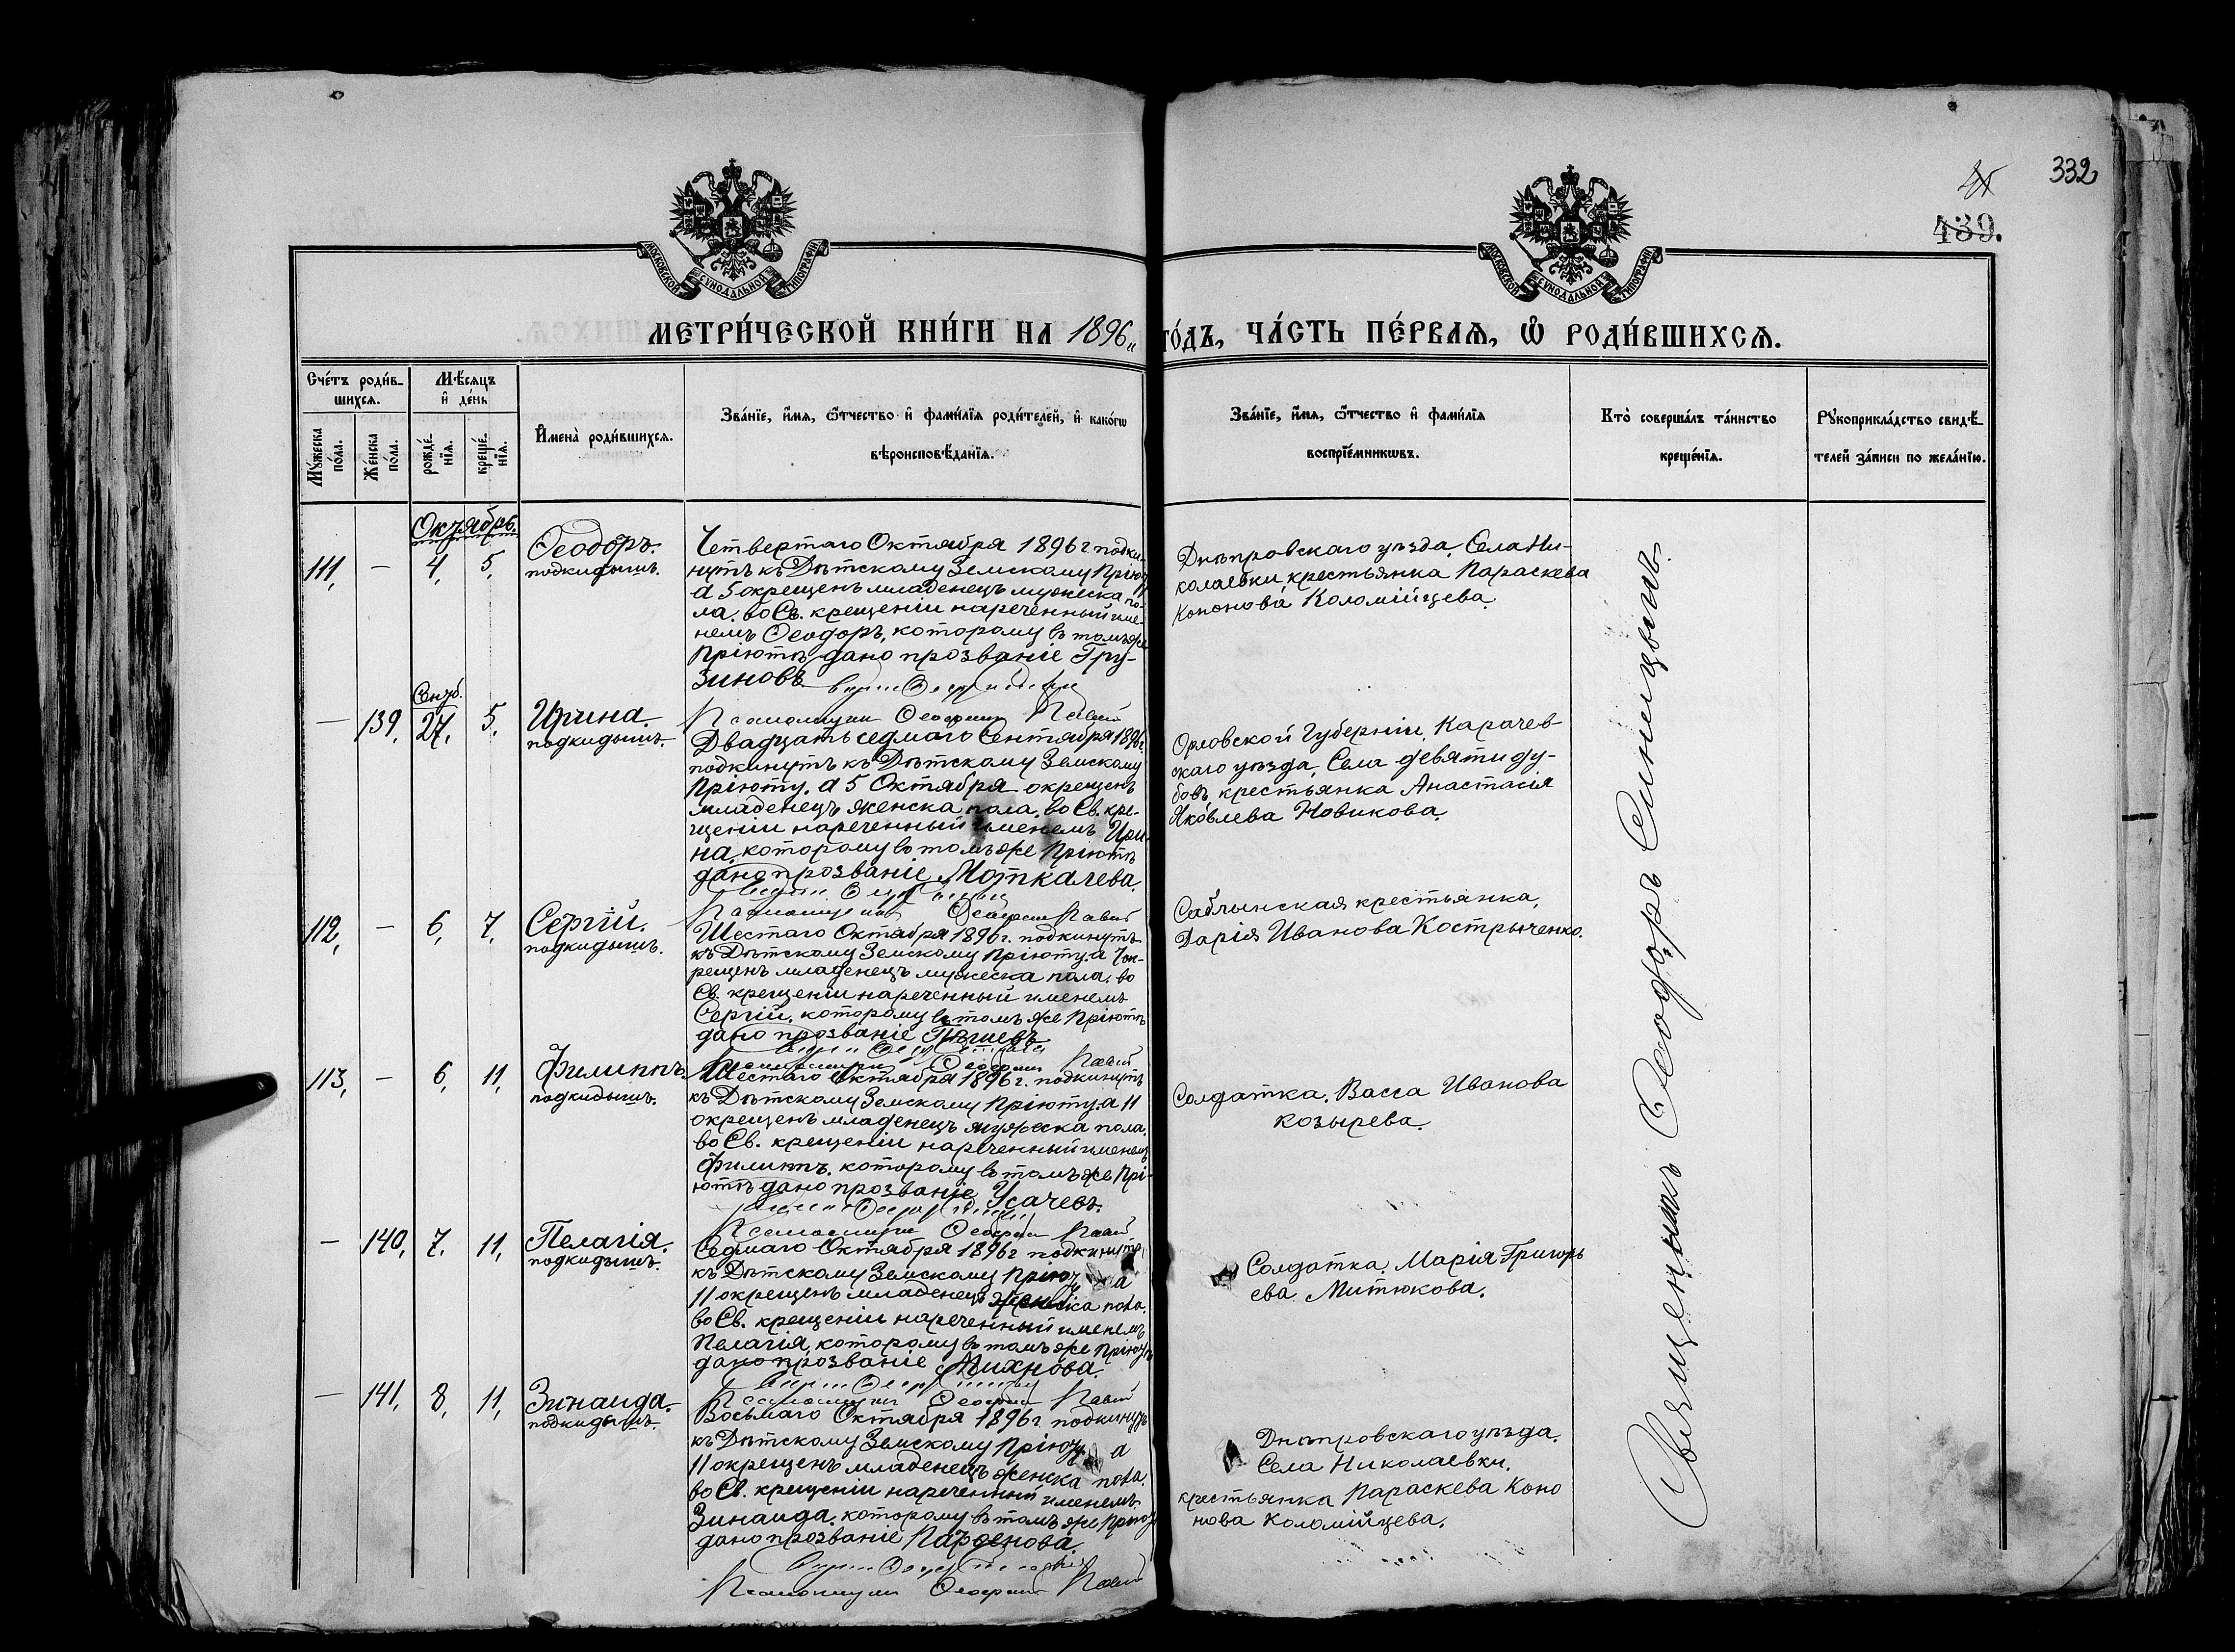 332
439.
МОСКОВСКОЙ СѴНОДАЛЬНОЙ ТИПОГРАФІИ
МОСКОВСКОЙ СѴНОДАЛЬНОЙ ТИПОГРАФІИ
МЕТРИ́ЧЕСКОЙ КНИ́ГИ НА 1896 ГО́ДЪ, ЧА́СТЬ ПЕ́РВАѦ, Ѡ҆ РОДИ́ВШИХСѦ.
Сче́тъ роди́в-
шихся.
Мѣ́сяцъ
и҆ де́нь
Мꙋ́жеска по́ла.
Же́нска по́ла.
рожде́-
нїѧ.
креще́-
нїѧ.
И҆мена̀ роди́вшихсѧ.
Зва́нїе, и҆́мѧ, ѻ҆́тчество и҆ фами́лїѧ роди́телей, и҆ како́гѡ
вѣроисповѣ́данїѧ.
Зва́нїе, и҆́мѧ, ѻ҆́тчество и҆ фами́лїѧ
воспрїе́мникѡвъ.
Кто̀ соверша́лъ та́инство
креще́нїѧ.
Рꙋкоприкла́дство свидѣ́-
телей за́писи по жела́нїю.
Октябрь.
111, — 4, 5,
Ѳеодоръ.
подкидышъ.
Четвертаго Октября 1896 г подки-
нутъ къ Дѣтскому Земскому Пріюту
а 5 окрещенъ младенецъ мужеска по-
ла, во Св. крещеніи нареченный име-
немъ Ѳеодоръ, которому въ томъ же
Пріютѣ дано прозваніе Гру-
зиновъ
Днѣпровскаго уѣзда, Села Ни-
колаевки, крестьянка Параскева
Кононова Коломійцева.
Сент.
— 139, 27, 5,
Ирина.
подкидышъ.
Псаломщик
Двадцать седмаго Сентября 1896 г.
подкинутъ къ Дѣтскому Земскому
Пріюту, а 5 Октября окрещенъ
младенецъ женска пола, во Св. кре-
щеніи нареченный именемъ Ири-
на, которому въ томъ же Пріютѣ
дано прозваніе Моткалева.
Орловской Губерніи, Карачев-
скаго уѣзда, Села девяти ду-
бовъ крестьянка Анастасія
Яковлева Новикова.
112, — 6, 7,
Сергій.
подкидышъ.
Псаломщик
Шестаго Октября 1896 г. подкинутъ
къ Дѣтскому Земскому Пріюту, а 7 ок-
рещенъ младенецъ мужеска пола, во
Св. крещеніи нареченный именемъ
Сергій, которому въ томъ же Пріютѣ
дано прозваніе
Саблынская крестьянка,
Дарія Иванова Костырченко.
113, — 6, 11,
Филиппъ.
подкидышъ.
Шестаго Октября 1896 г. подкинутъ
къ Дѣтскому Земскому Пріюту, а 11
окрещенъ младенецъ мужеска пола,
во Св. крещеніи нареченный именемъ
Филиппъ, которому въ томъ же Прі-
ютѣ дано прозваніе Усачевъ.
Солдатка, Васса Иванова
Козырева.
— 140, 7, 11,
Пелагія.
подкидышъ.
Псаломщик
Седмаго Октября 1896 г подкинутъ
къ Дѣтскому Земскому Пріюту а
11 окрещенъ младенецъ женска пола,
во Св. крещеніи нареченный именемъ
Пелагія, которому въ томъ же Пріютѣ
дано прозваніе Михнова.
Солдатка, Марія Григорь
ева Митюкова.
— 141, 8, 11,
Зинаида.
подкидышъ.
Псаломщик
Восьмаго Октября 1896 г подкинутъ
къ Дѣтскому Земскому Пріюту а
11 окрещенъ младенецъ женска пола,
во Св. крещеніи нареченный именемъ
Зинаида, которому въ томъ же Пріютѣ
дано прозваніе Парѳенова.
Днѣпровскаго уѣзда,
Села Николаевки,
крестьянка Параскева Коно
нова Коломійцева.
Псаломщик
Священникъ Ѳеодоръ Синицынъ.